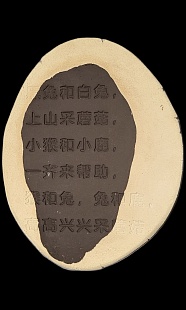 兔和白兔，
上山采蘑菇，
小猴和小鹿，
一齐来帮助，
猴和兔，兔和鹿，
高高兴兴采蘑菇